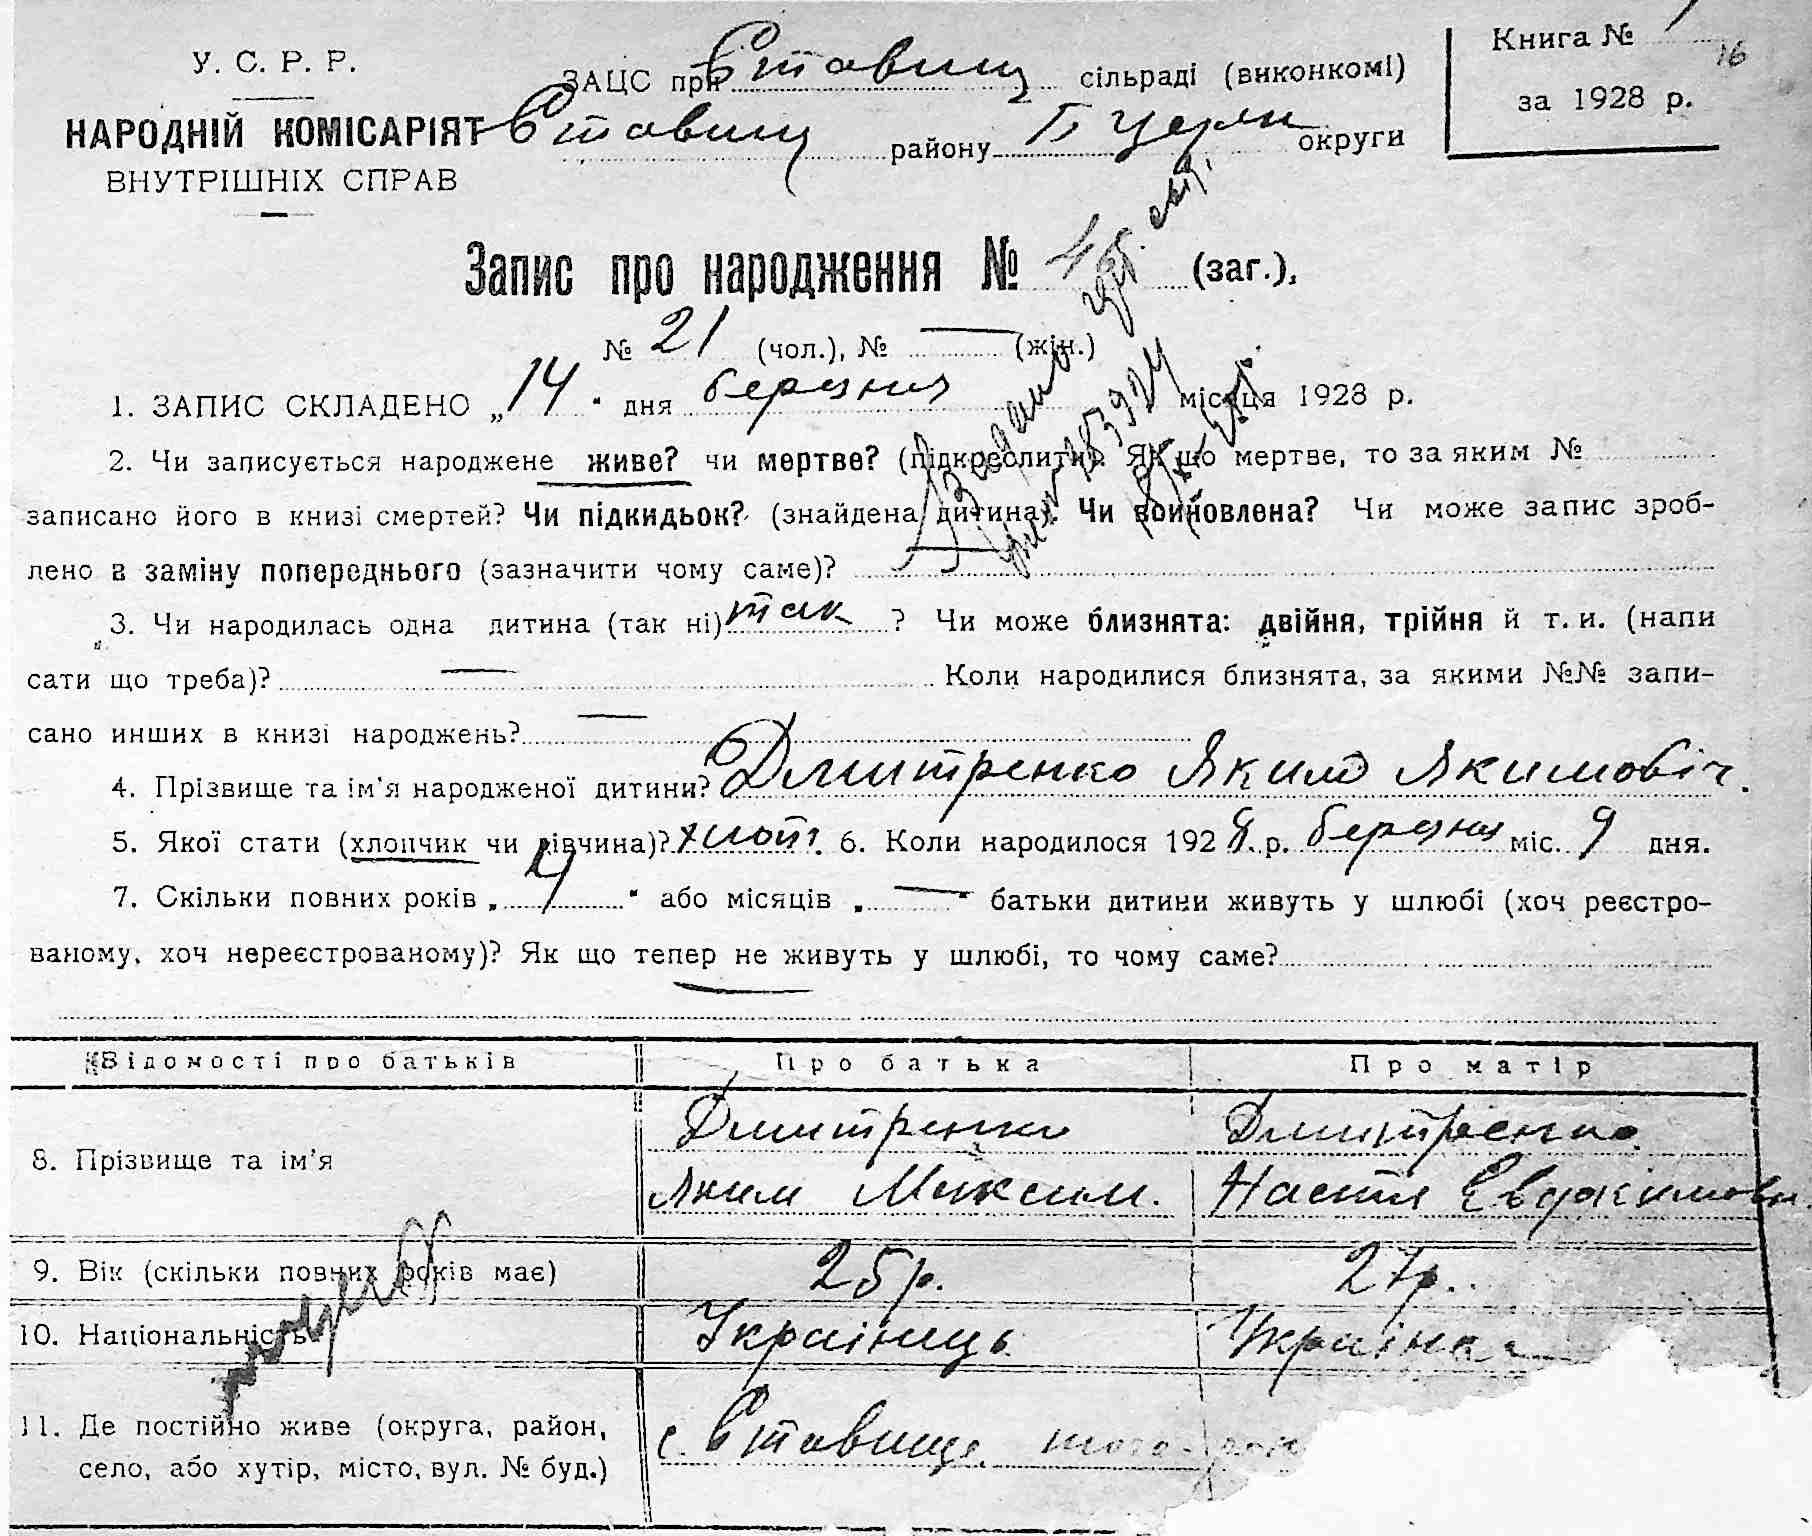 У. С. Р. Р.
НАРОДНІЙ КОМІСАРІЯТ
ВНУТРІШНІХ СПРАВ
ЗАЦС при Ставищ сільраді (виконкомі)
Ставищ району Б Церкв округи
Книга №
16
за 1928 р.
Запис про народження № (заг.),
№ 21 (чол.), № — (жін.)
1. ЗАПИС СКЛАДЕНО „14“ дня березня місяця 1928 р.
2. Чи записується народжене живе? чи мертве? (підкреслити). Як що мертве, то за яким №
записано його в книзі смертей? Чи підкидьок? (знайдена дитина). Чи войновлена? Чи може запис зроб-
лено в заміну попереднього (зазначити чому саме)?
Видано
3. Чи народилась одна дитина (так ні) так ? Чи може близнята: двійня, трійня й т. и. (напи
сати що треба)? — Коли народилися близнята, за якими №№ запи-
сано инших в книзі народжень? —
4. Прізвище та ім'я народженої дитини? Дмитренко Яким Якимовіч.
5. Якої стати (хлопчик чи дівчина)? хлопч. 6. Коли народилось 1928. р. березня міс. 9 дня.
7. Скільки повних років „4“ або місяців „—“ батьки дитини живуть у шлюбі (хоч реєстро-
ваному, хоч нереєстрованому)? Як що тепер не живуть у шлюбі, то чому саме?
Відомості про батьків Про батька Про матір
8. Прізвище та ім'я
Дмитренко Дмитренко
Яким Максим. Настя Євдокимовн.
9. Вік (скільки повних років має) 25р. 27р.
10. Національність Українець Українка
11. Де постійно живе (округа, район,
село, або хутір, місто, вул. № буд.)
с. Ставище того